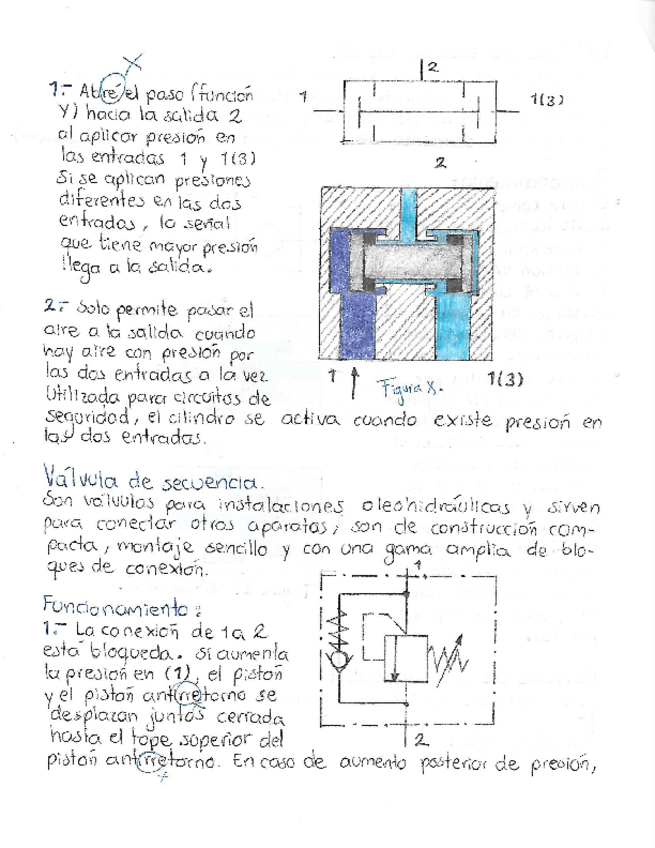 X
1.- Abre el paso (función
Y) hacia la salida 2
al aplicar presión en
las entradas 1 y 1(3)
Si se aplican presiones
diferentes en las dos
entradas, la señal
que tiene mayor presión
llega a la salida.
2
1
1(3)
2
2.- Solo permite pasar el
aire a la salida cuando
hay aire con presión por
las dos entradas a la vez
Utilizada para circuitos de
seguridad, el cilindro se activa cuando existe presión en
las dos entradas.
1
Figura X.
1(3)
Válvula de secuencia.
Son válvulas para instalaciones oleohidráulicas y sirven
para conectar otros aparatos, son de construcción com-
pacta, montaje sencillo y con una gama amplia de blo-
ques de conexión.
Funcionamiento:
1.- La conexión de 1 a 2
está bloqueda. si aumenta
la presion en (1), el pistoñ
y el pistoñ antirretorno se
desplazan juntos cerrada
hasta el tope superior del
pistoñ antirretorno. En caso de aumento posterior de presión,
1
2